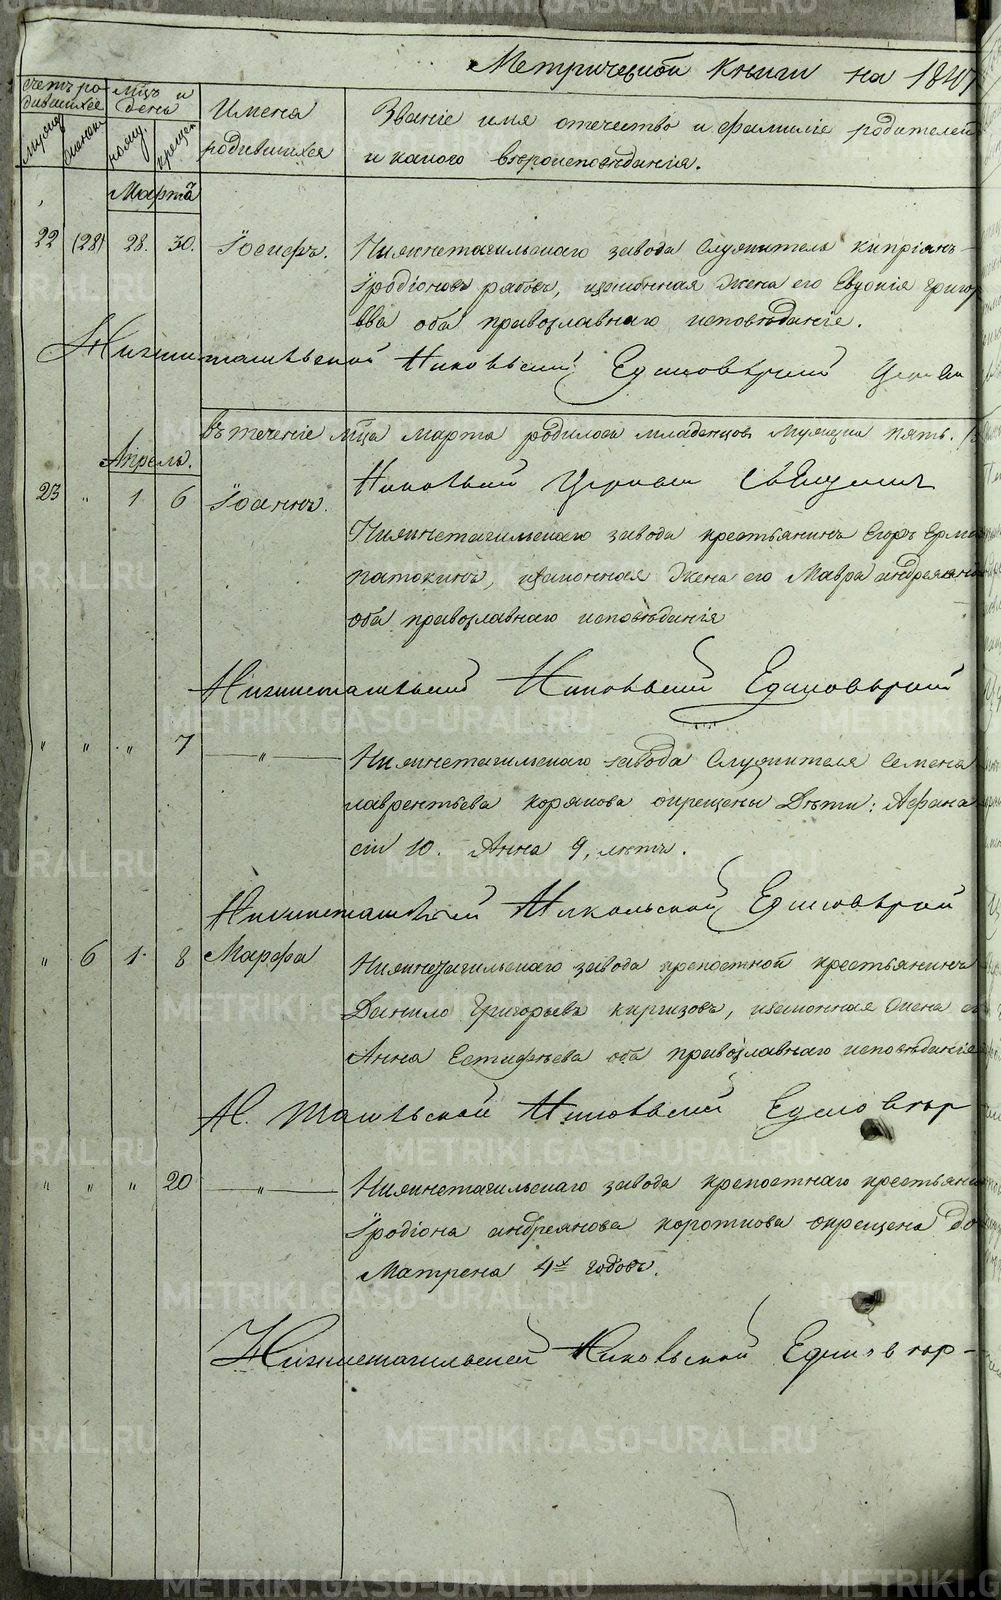 Метрической книги на 1847
счетъ родившихся
мѣсяцъ и день
Имена родившихся
Званіе имя отечество и фамиліе родителей
и какого вѣроисповѣданія.
Марта
22 (28) 28. 30. Іосифъ. Нижнетагильскаго завода служитель Кипріянъ
Іродіоновъ рябовъ, законная жена его Евдокія григор
ева оба православнаго исповѣданіе.
Нижнетагильской Никольской Единовѣрческой Церкви
въ теченіе мца марта родилось младенцовъ мужска пять.
Апрель.
Никольской Церкви Священник
23 " 1 6 Іоаннъ.
Нижнетагильскаго завода крестьянинъ Егоръ Ермо
патокинъ, законная жена его Мавра андреянов
оба православнаго исповѣданія
Нижнетагильской Никольской Единоверской
" " " 7 — " — Нижнетагильскаго завода служителя Семена
лаврентьева корякова окрещены дѣти: Афана
сіи 10. Анна 9, лѣтъ.
Нижнетагильской Никольской Единоверской
" 6 1. 8 Марфа Нижнетагильскаго завода крепостной крестьянинъ
Данило Григорьевъ киргизовъ, законная жена ег
Анна Естифѣева оба православнаго исповѣданія
Н. Тагильской Никольской Единовѣр
" " " 20 — " — Нижнетагильскаго завода крепостнаго крестьяни
Іродіона андреянова короткова окрещена до
Матрена 4х годовъ.
Нижнетагильской Никольской Единовѣр-
METRIKI.GASO-URAL.RU